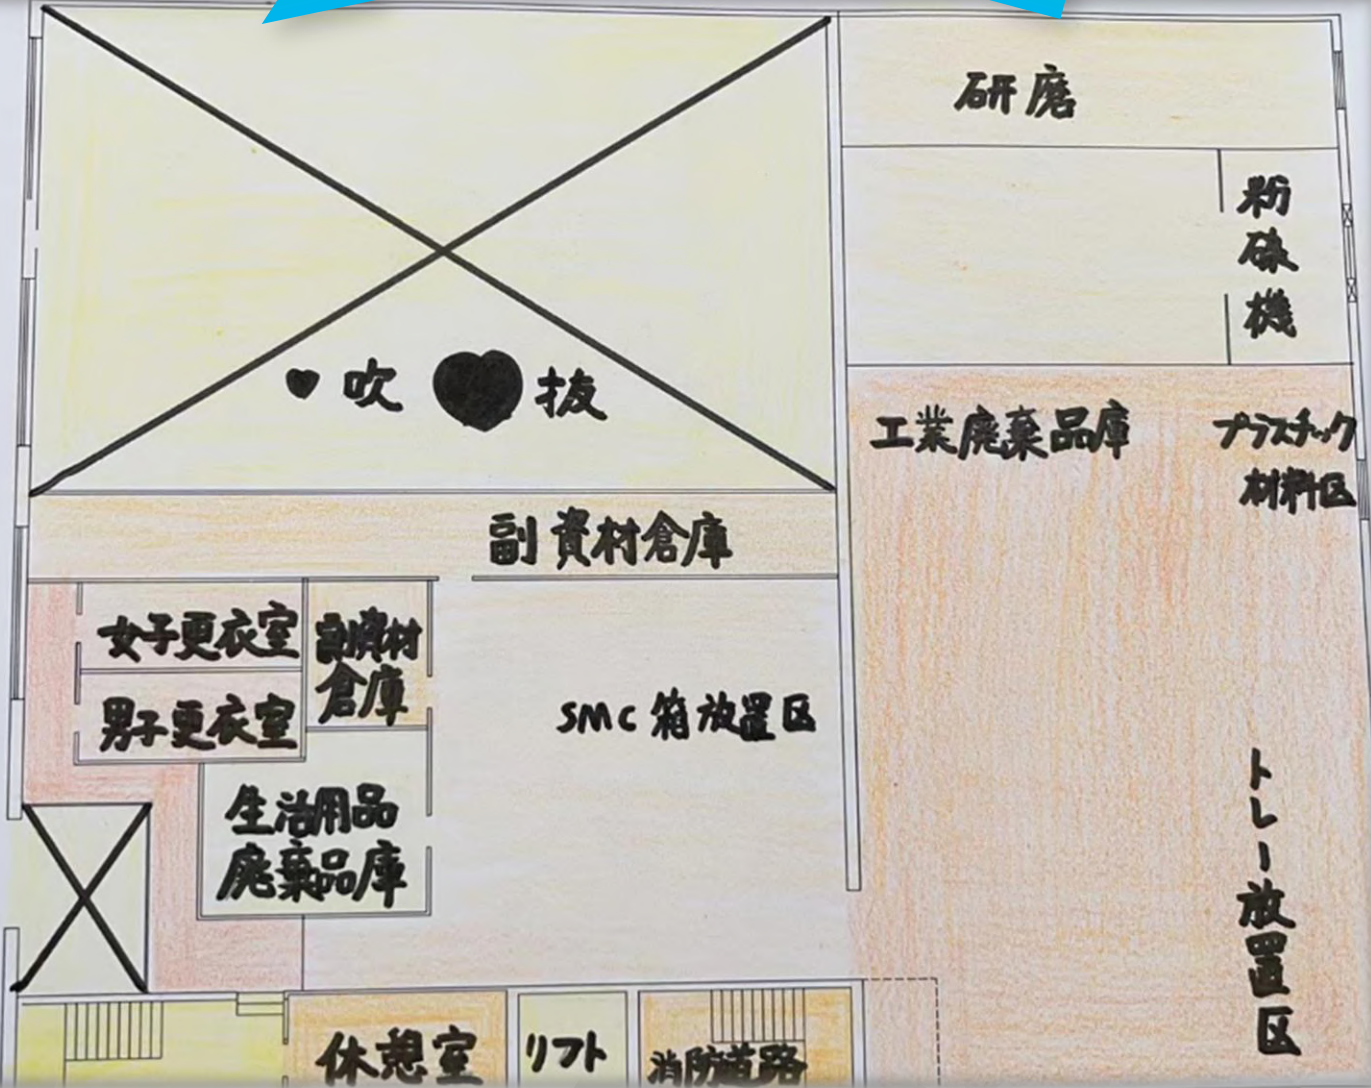 研磨
粉
碌
機
♥吹♥抜
工業廃棄品庫
プラスチック
材料区
副資材倉庫
女子更衣室
副資材
倉庫
男子更衣室
SMC箱放置区
生活用品
廃棄品庫
トレー放置区
休憩室
リフト
消防道路